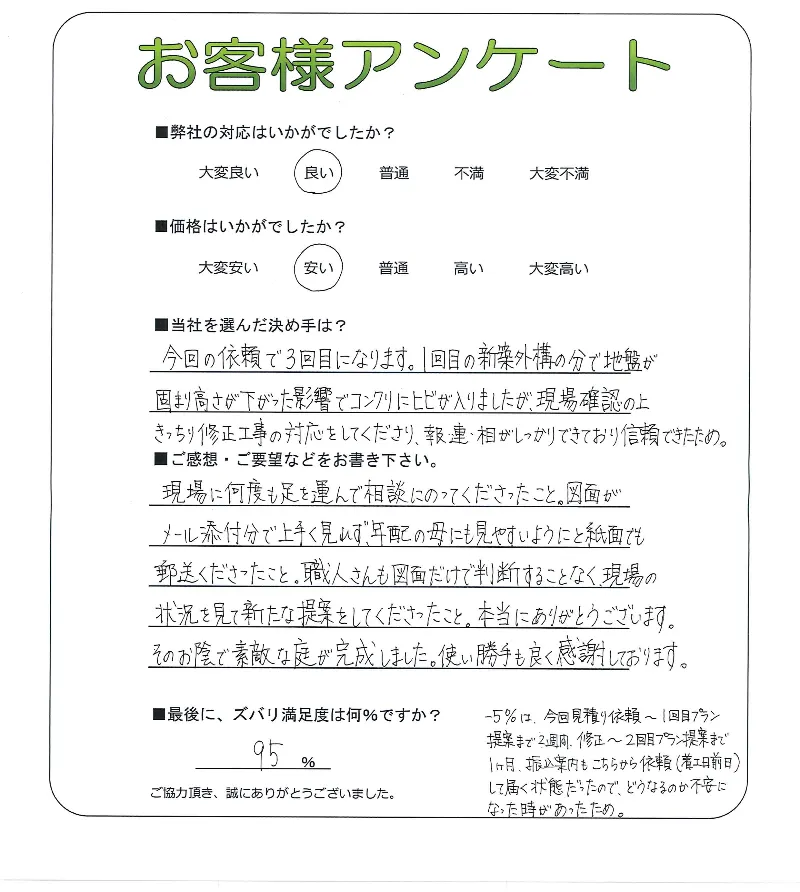 お客様アンケート
■弊社の対応はいかがでしたか？
大変良い 良い 普通 不満 大変不満
■価格はいかがでしたか？
大変安い 安い 普通 高い 大変高い
■当社を選んだ決め手は？
今回の依頼で3回目になります。1回目の新築外構の分で地盤が
固まり高さが下がった影響でコンクリにヒビが入りましたが、現場確認の上
きっちり修正工事の対応をしてくださり、報・連・相がしっかりできており信頼できたため。
■ご感想・ご要望などをお書き下さい。
現場に何度も足を運んで相談にのってくださったこと。図面が
メール添付分で上手く見れず、年配の母にも見やすいようにと紙面でも
郵送くださったこと。職人さんも図面だけで判断することなく、現場の
状況を見て新たな提案をしてくださったこと。本当にありがとうございます。
そのお陰で素敵な庭が完成しました。使い勝手も良く感謝しております。
■最後に、ズバリ満足度は何%ですか？
95 %
ご協力頂き、誠にありがとうございました。
-5%は、今回見積り依頼～1回目プラン
提案まで2週間、修正～2回目プラン提案まで
1ヶ月、振込案内もこちらから依頼(着工日前日)
して届く状態だったので、どうなるのか不安に
なった時があったため。